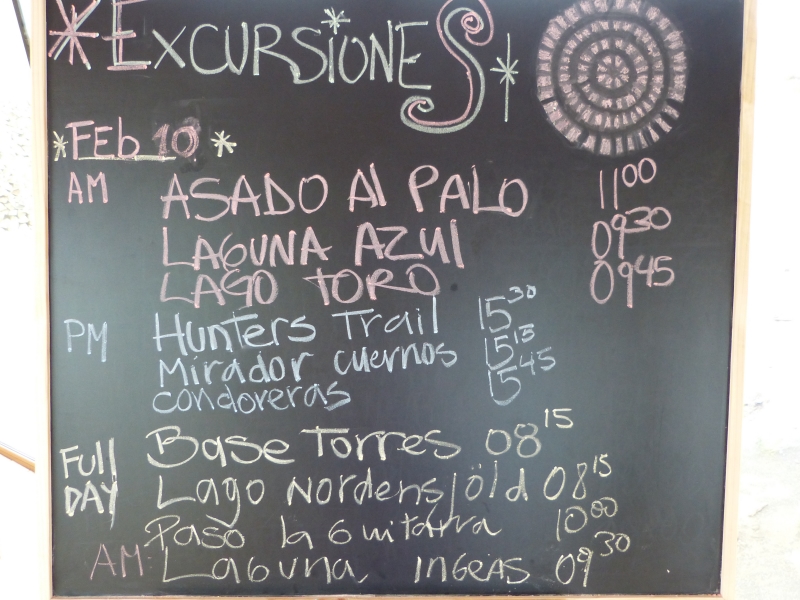 EXCURSIONES
FEb 10
AM ASADO Al PALO 11 00
LAGUNA AZUl 09 30
LAGO TORO 09 45
PM Hunters Trail 15 30
Mirador cuernos 15 15
condoreras 15 45
Full DAY Base Torres 08 15
Lago Nordensjöld 08 15
Paso la Guitarra 10 00
AM: Laguna INGEAS 09 30